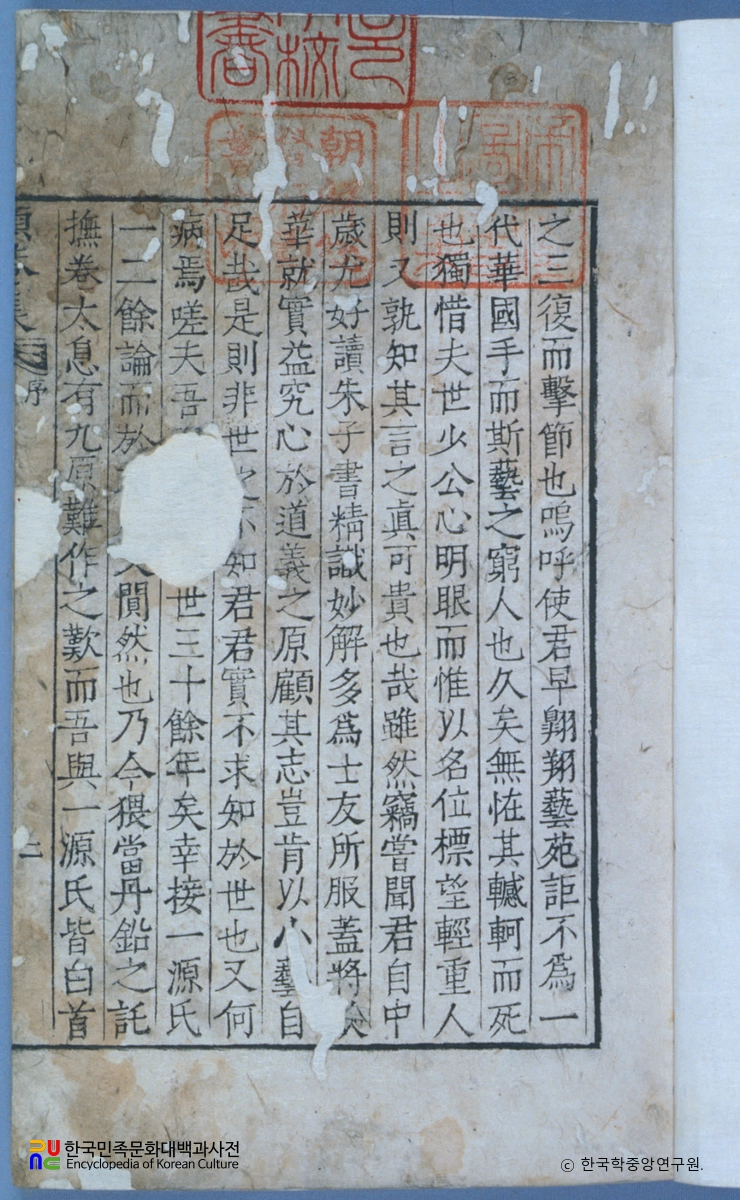 之三復而擊節也嗚呼使君早翺翔藝苑詎不爲一
代華國手而斯藝之窮人也久矣無恠其轗軻而死
也獨惜夫世少公心明眼而惟以名位標望輕重人
則又孰知其言之眞可貴也哉雖然竊嘗聞君自中
歲尤好讀朱子書精識妙解多爲士友所服蓋將
華就實益究心於道義之原顧其志豈肯以小藝自
足哉是則非世之不知君君實不求知於世也又何
病焉嗟夫吾 世三十餘年矣幸接一源氏
一二餘論而於 間然也乃今猥當丹鉛之託
撫卷太息有九原難作之歎而吾與一源氏皆白首
集 序 二
한국민족문화대백과사전
Encyclopedia of Korean Culture
© 한국학중앙연구원.